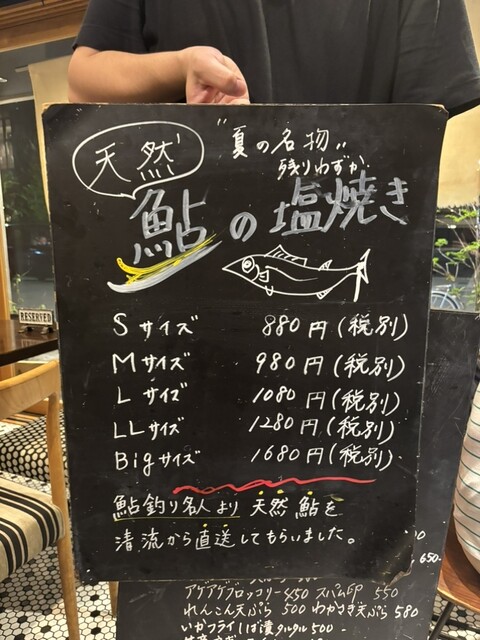 "夏の名物"
残りわずか
天然
鮎の塩焼き
RESERVED
Sサイズ 880円(税別)
Mサイズ 980円(税別)
Lサイズ 1080円(税別)
LLサイズ 1280円(税別)
Bigサイズ 1680円(税別)
鮎釣り名人より天然鮎を
清流から直送してもらいました。
650-
アゲアゲブロッコリー450 スパムEP 550
れんこん天ぷら 500 わかさぎ天ぷら 580
いかフライしば漬タルタル 500